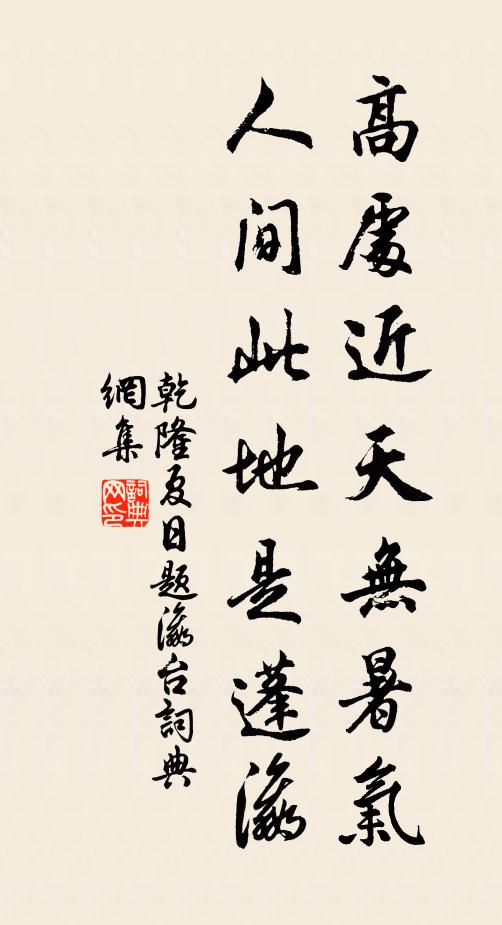 高處近天無暑氣
人间此地是蓬瀛
乾隆夏日題瀛台詞典
網集
詞典
网印